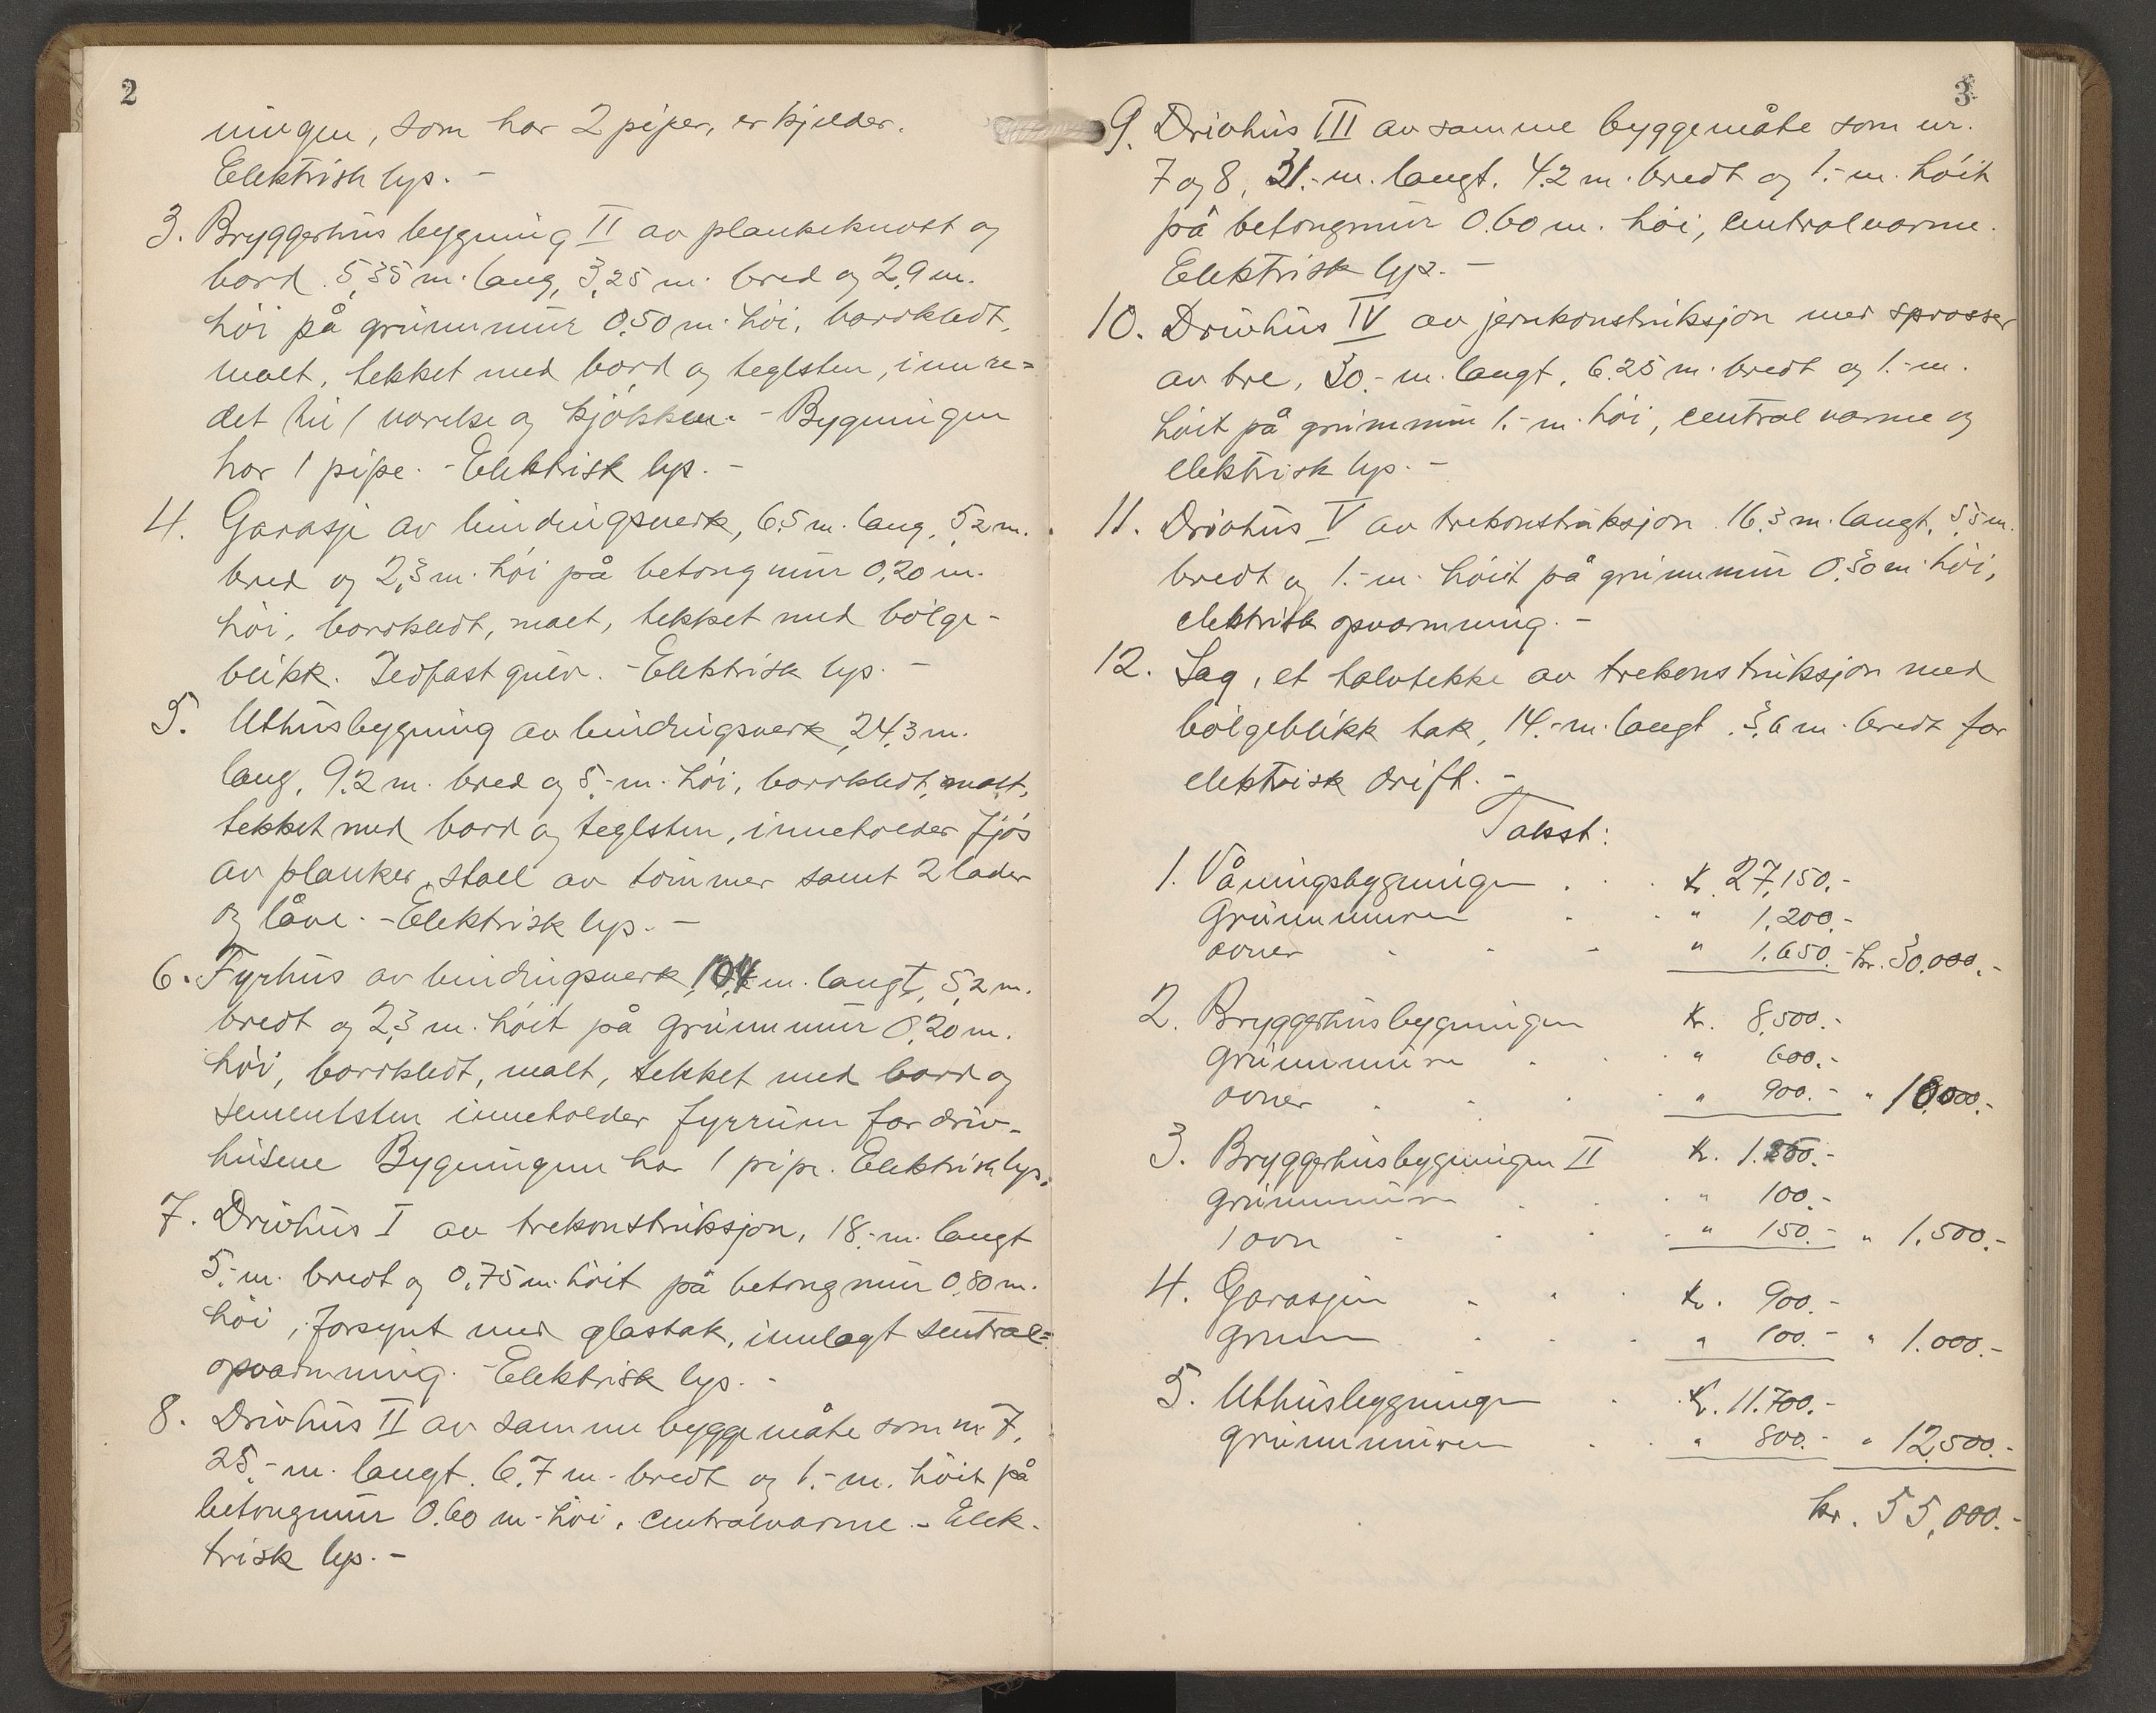 2
ningen, som har 2 piper, er kjelder.
Elektrisk lys. -
3. Bryggerhus bygning II av plankeknubt og
bord. 5,35 m. lang, 3,25 m. bred og 2,9 m.
höi på grunnmur 0,50 m. höi, bordkledt,
malt, tekket med bord og teglsten, innre=
det til 1 værelse og kjökken. - Bygningen
har 1 pipe. - Elektrisk lys. -
4. Garasje av bindingsverk, 6,5 m. lang, 5,2 m.
bred og 2,3 m. höi på betongmur 0,20 m.
höi, bordkledt, malt, tekket med bölge-
blikk. Ildfast gulv. - Elektrisk lys. -
5. Uthusbygning av bindingsverk, 24,3 m.
lang, 9,2 m. bred og 5,- m. höi, bordkledt, malt,
tekket med bord og teglsten, inneholder fjös
av planker, stall av tömmer samt 2 lader
og låve. - Elektrisk lys. -
6. Fyrhus av bindingsverk, 10,4 m. langt, 5,2 m.
bredt og 2,3 m. höit på grunnmur 0,20 m.
höi, bordkledt, malt, tekket med bord og
sementsten inneholder fyrrum for driv-
husene Bygningen har 1 pipe. Elektrisk lys.
7. Drivhus I av trekonstruksjon, 18,- m. langt
5,- m. bredt og 0,75 m. höit på betongmur 0,80 m.
höi, forsynt med glastak, innlagt sentral=
opvarmning. - Elektrisk lys. -
8. Drivhus II av samme byggemåte som nr 7,
25,- m. langt. 6,7 m. bredt og 1,- m. höit på
betongmur 0.60 m. höi, centralvarme. - Elek-
trisk lys. -
3
9. Drivhus III av samme byggemåte som nr.
7 og 8, 31.- m. langt, 4.2 m. bredt og 1.- m. höit
på betongmur 0.60 m. höi, centralvarme.
Elektrisk lys. -
10. Drivhus IV av jernkonstruksjon med sprosser
av tre, 30.- m. langt, 6.25 m. bredt og 1.- m.
höit på grunnmur 1.- m. höi, central varme og
elektrisk lys. -
11. Drivhus V av trekonstruksjon 16,3 m. langt, 5,5 m.
bredt og 1.- m. höit på grunnmur 0,30 m. höi,
elektrisk opvarmning. -
12. Sag, et halvtekke av trekonstruksjon med
bölgeblikk tak, 14.- m. langt, 3,6 m. bredt for
elektrisk drift. -
Takst:
1. Våningsbygningen . . . kr. 27,150.-
Grunnmuren . . " 1,200.-
ovner . . - " 1.650.- kr. 30.000.-
2. Bryggerhusbygningen kr. 8,500.-
grunnmuren . . . " 600.-
ovner . . . . " 900.- " 10000.-
3. Bryggerhusbygningen II kr. 1.250.-
grunnmuren . . . " 100.-
1 ovn . . . . " 150.- " 1.500.-
4. Garasjen . . . kr. 900.-
grunn . . . " 100.- " 1.000.-
5. Uthusbygningen . . kr. 11.700.-
grunnmuren . . " 800.- " 12,500.-
kr. 55,000.-